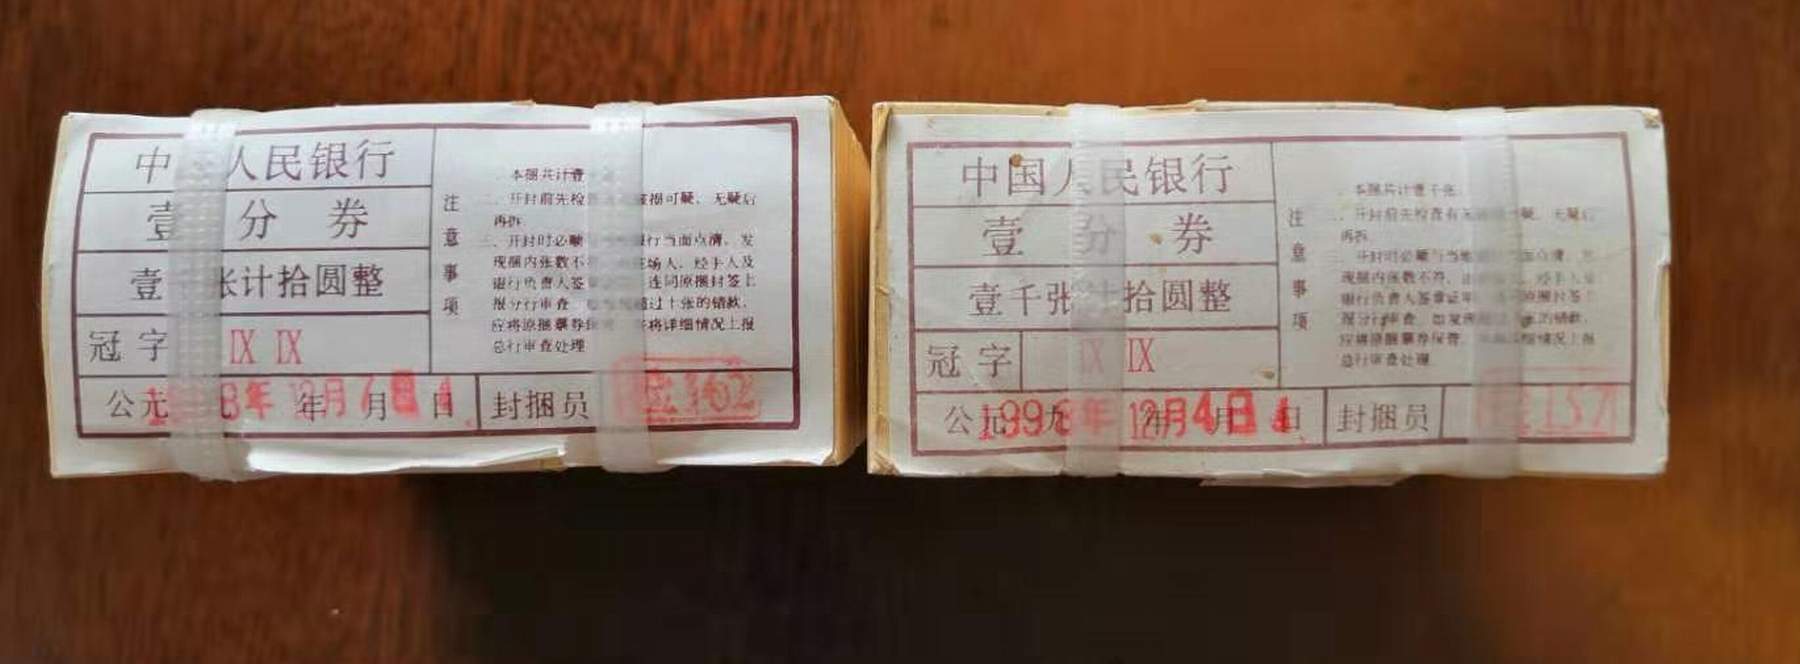 中 人民银行
壹 分 券
壹 张计拾圆整
冠字 IX IX
公元 8年 12月 年 月 日
封捆员 162
注意事项
一、本捆共计壹
二、开封前先检 破损可疑、无疑后
再拆
三、开封时必须 银行当面点清，发
现捆内张数不 在场人、经手人及
银行负责人签 连同原捆封签上
报分行审查 超过十张的错款，
应将原捆票券保 将详细情况上报
总行审查处理
中国人民银行
壹 分 券
壹千张计拾圆整
冠字 IX IX
公元1996年 12月4日 九 年 月 日
封捆员 157
注意事项
一、本捆共计壹千张
二、开封前先检查有无 疑、无疑后
再拆
三、开封时必须与当地 当面点清，发
现捆内张数不符， 、经手人及
银行负责人签章证 原捆封签上
报分行审查，如发现 张的错款，
应将原捆票券保管， 细情况上报
总行审查处理